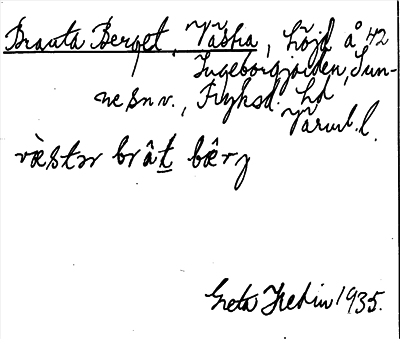 Branta Berget, Västra, höjd å 42
Ingeborgjorden, Sun-
ne sn v., Fryksd. hd
Värml. l.
vèstər brât bêrj
Greta Hedin 1935.